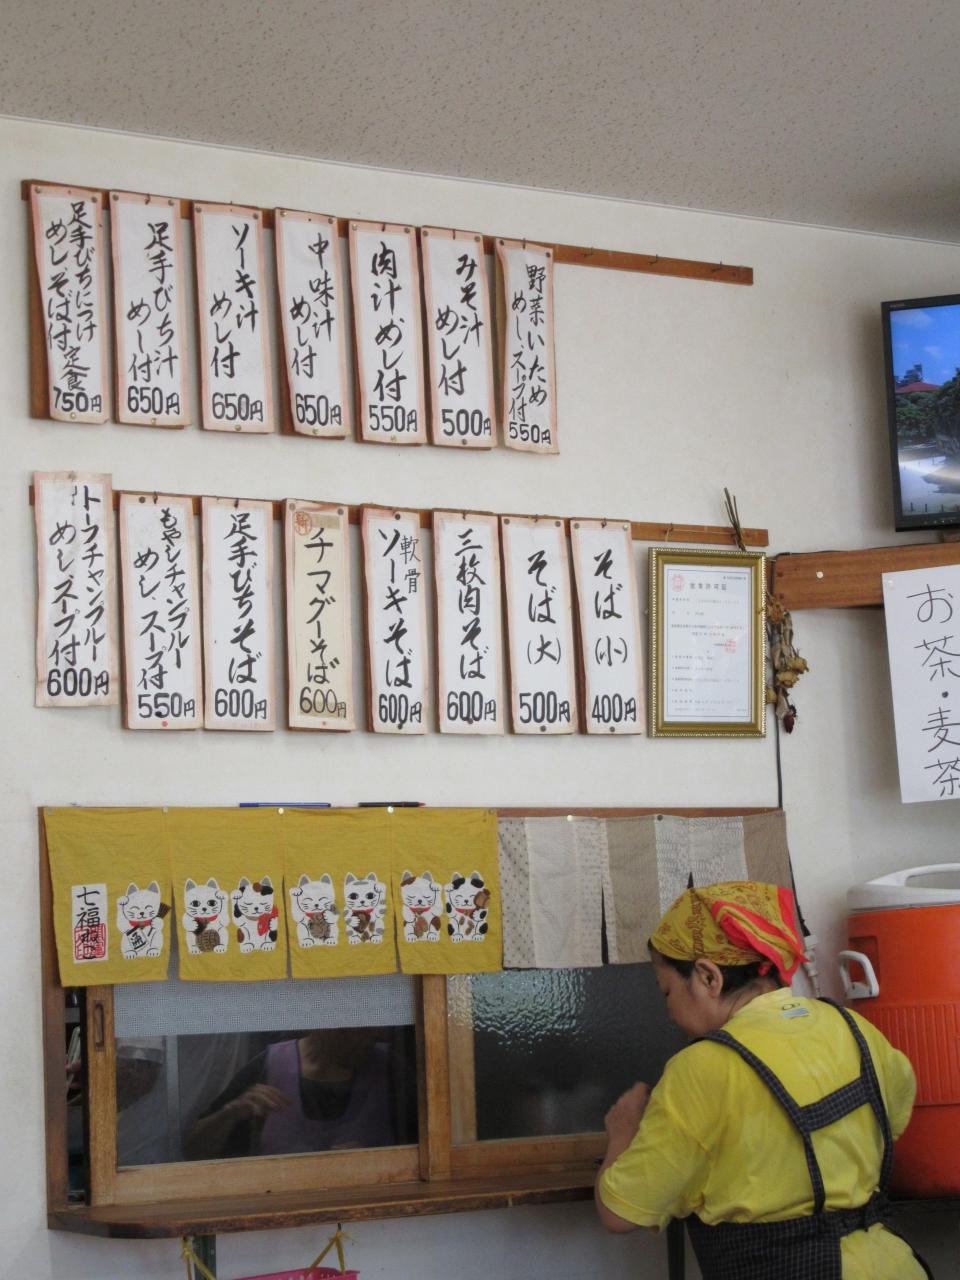 足手びちにつけ
めし、そば付定食
750円
足手びち汁
めし付
650円
ソーキ汁
めし付
650円
中味汁
めし付
650円
肉汁めし付
550円
みそ汁
めし付
500円
野菜いため
めし、スープ付
550円
トーフチャンプルー
めし、スープ付
600円
もやしチャンプルー
めし、スープ付
550円
足手びちそば
600円
チマグーそば
600円
軟骨
ソーキそば
600円
三枚肉そば
600円
そば(大)
500円
そば(小)
400円
営業許可証
お茶・麦茶
七福